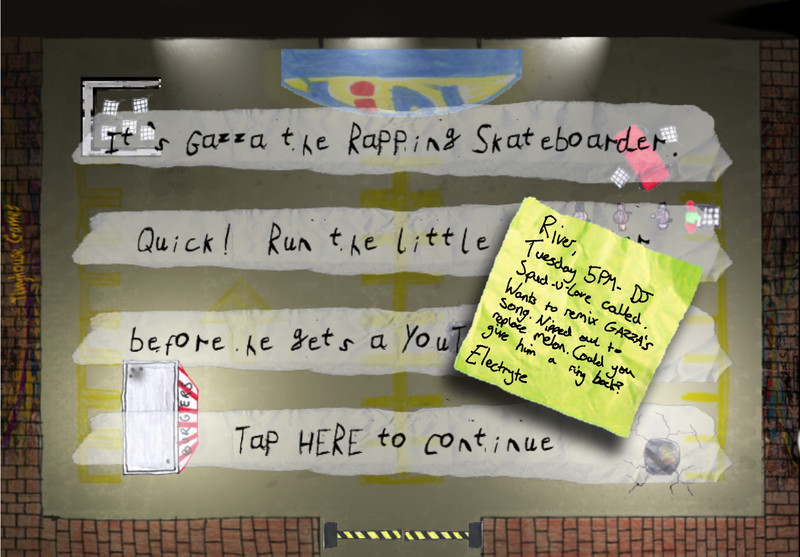 It's Gazza the Rapping Skateboarder.
Quick! Run the little
before he gets a YouT
Tap HERE to continue
River,
Tuesday 5PM- DJ
Spud-u-love called.
Wants to remix GAZZA'S
song. Nipped out to
replace melon. Could you
give him a ring back?
Electryte
BURGERS